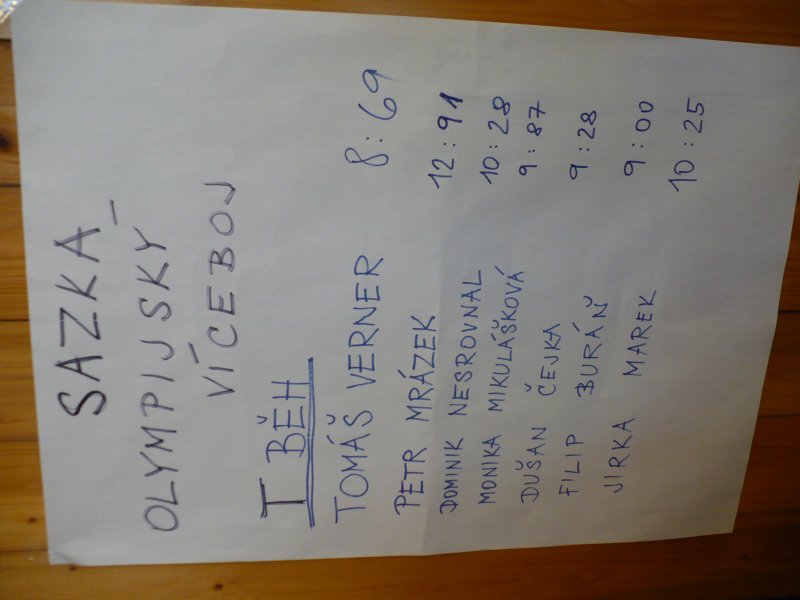 SAZKA
OLYMPIJSKÝ
VÍCEBOJ
I BĚH
TOMÁŠ VERNER 8:69
PETR MRÁZEK 12:91
DOMINIK NESROVNAL 10:28
MONIKA MIKULÁŠKOVÁ 9:87
DUŠAN ČEJKA 9:28
FILIP BURÁŇ 9:00
JIRKA MAREK 10:25